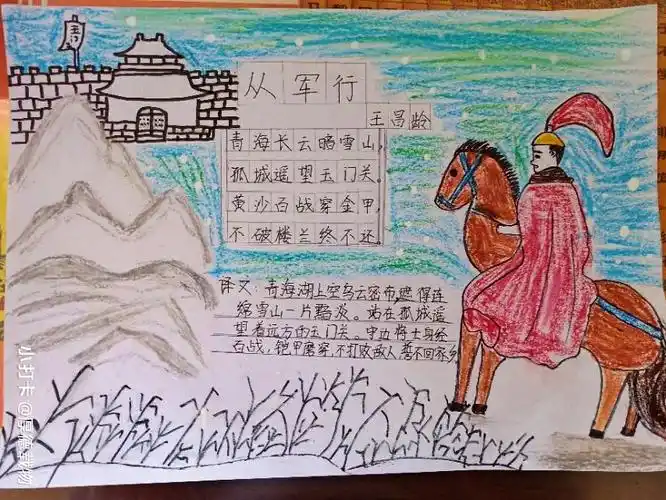 从军行
王昌龄
青海长云暗雪山,
孤城遥望玉门关。
黄沙百战穿金甲,
不破楼兰终不还。
译文:青海湖上空乌云密布,遮得连
绵雪山一片黯淡。站在孤城遥
望着远方的玉门关。守边将士身经
百战,铠甲磨穿,不打败敌人誓不回家乡
小打卡@